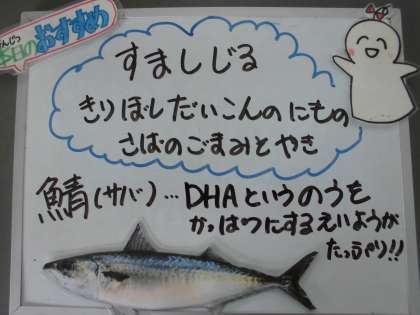 ほんじつ
本日のおすすめ
すましじる
きりぼしだいこんのにもの
さばのごまみそやき
鯖(サバ)…DHAというのうを
かっぱつにするえいようが
たっぷり!!